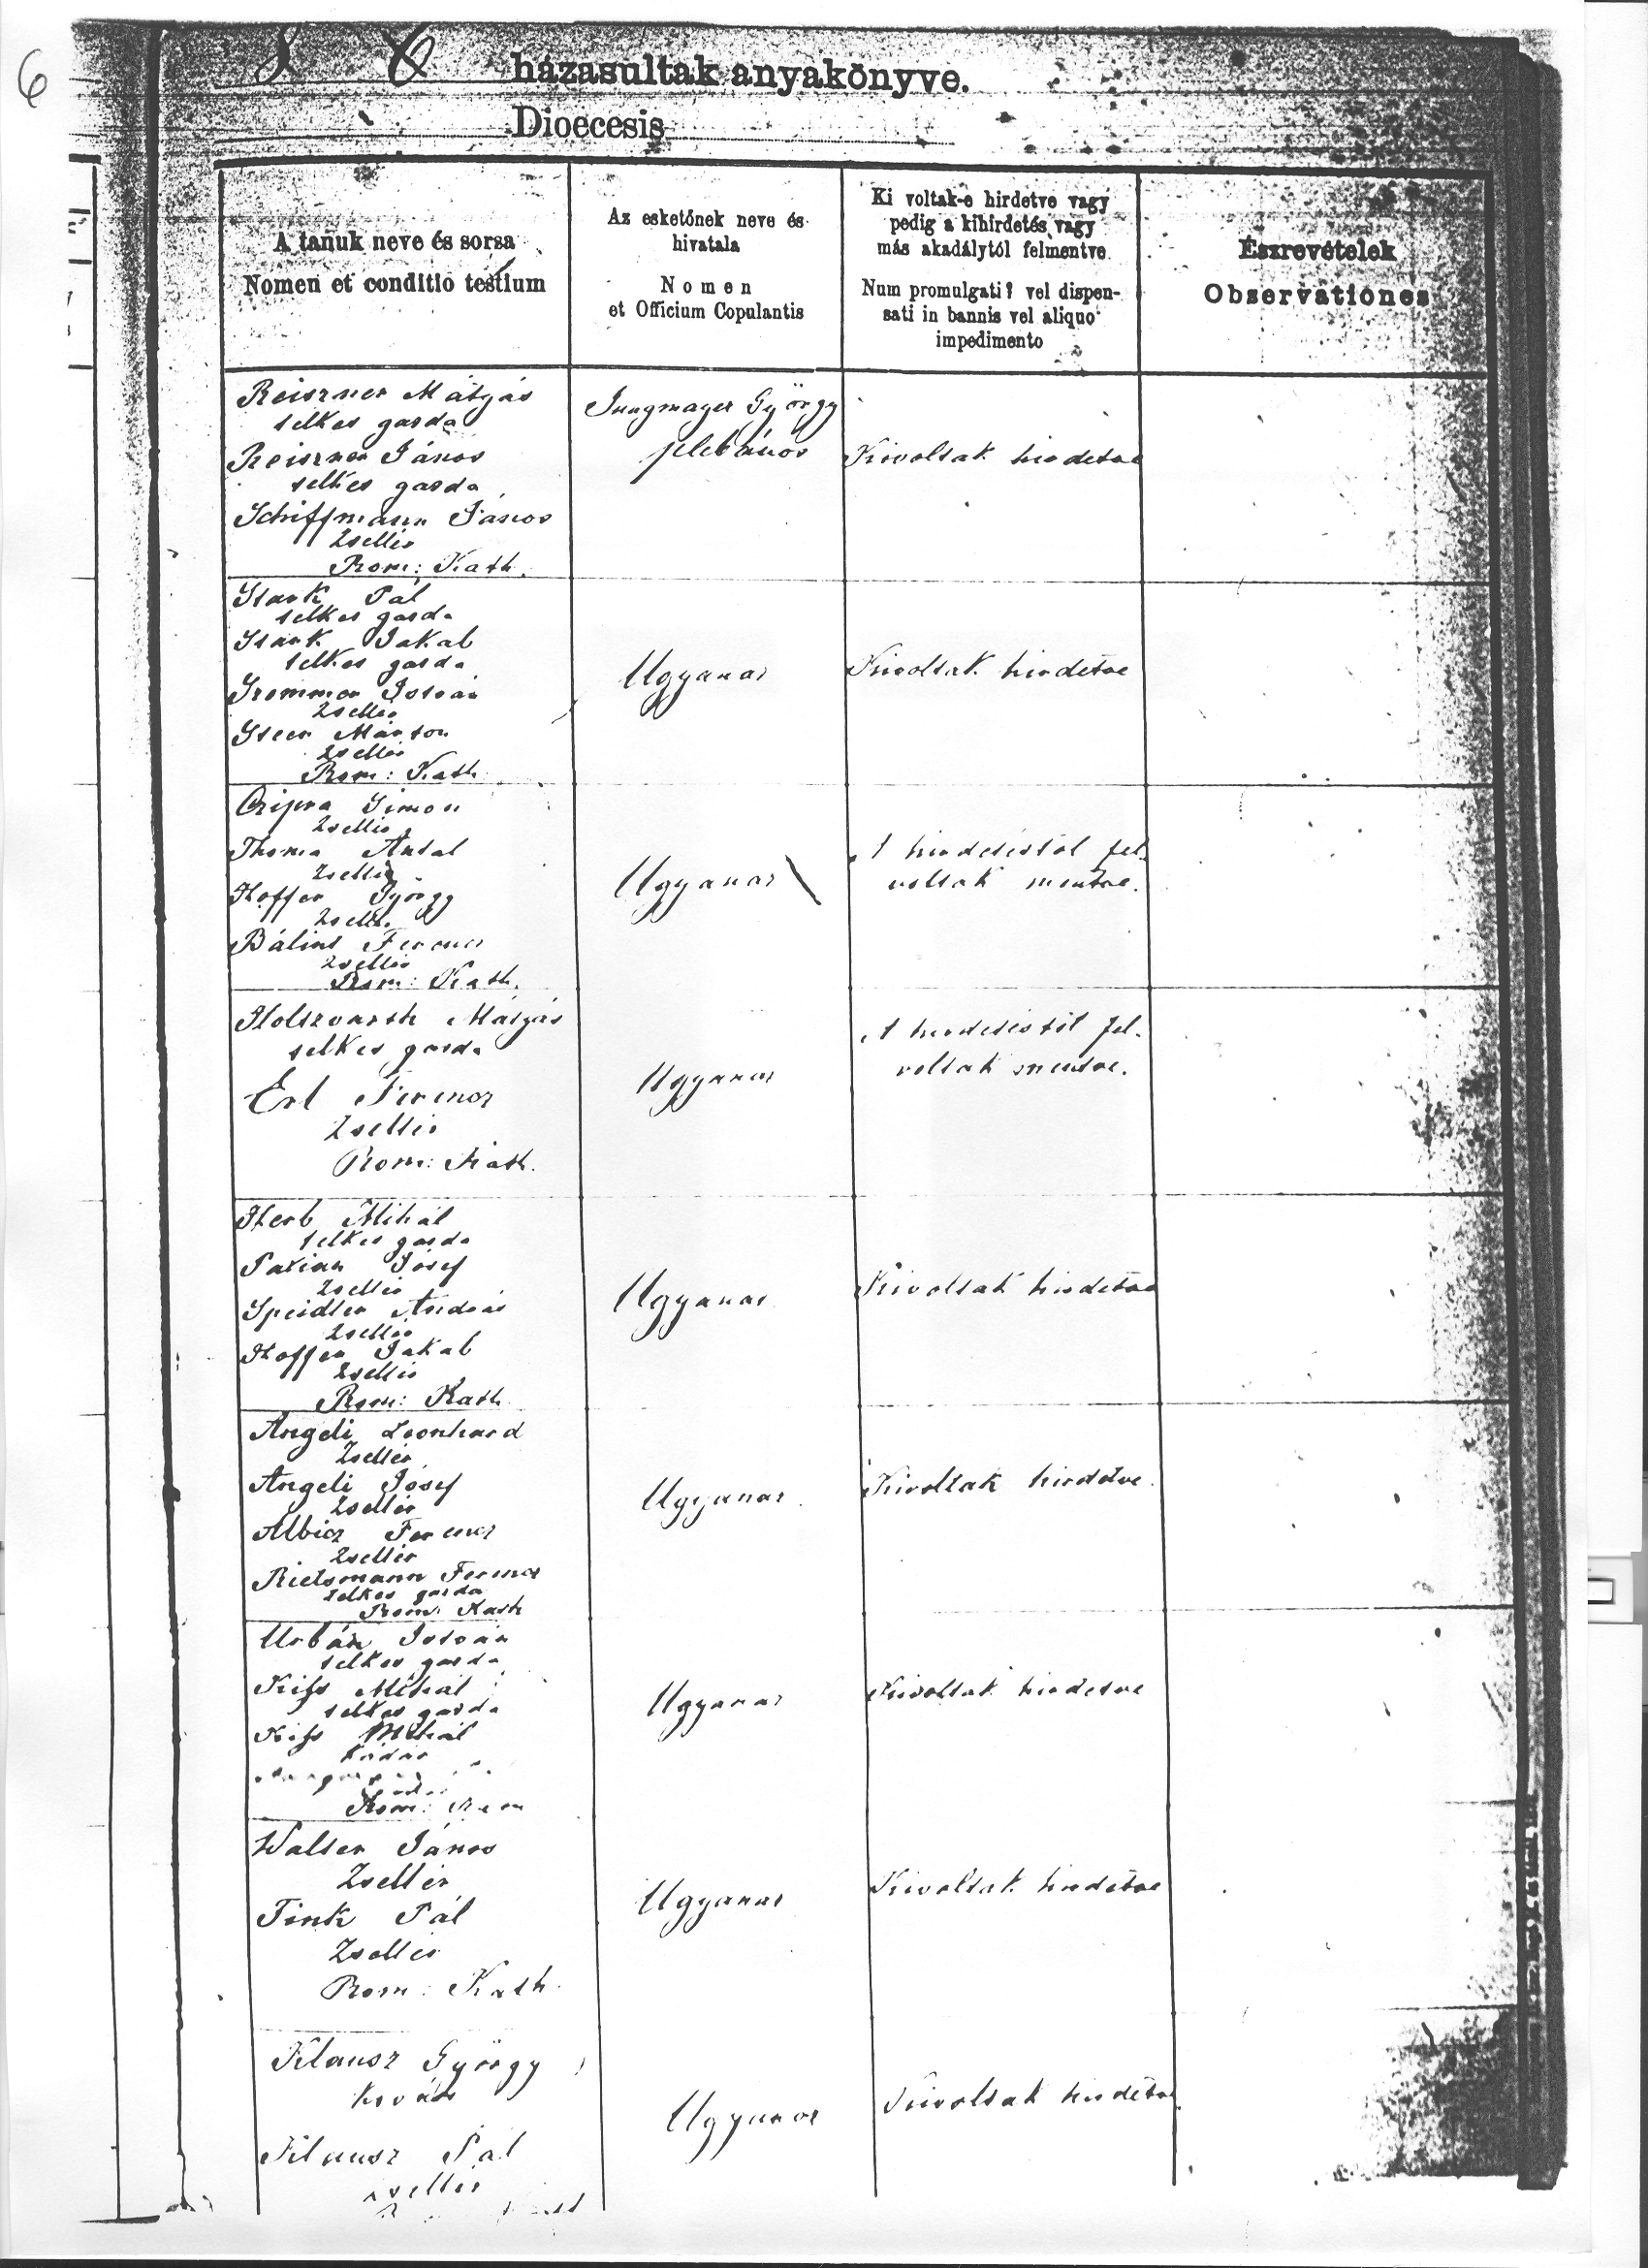 6
házasultak anyakönyve.
Dioecesis
A tanuk neve és sorsa
Nomen et conditio testium
Az esketőnek neve és
hivatala
Nomen
et Officium Copulantis
Ki voltak-e hirdetve vagy
pedig a kihirdetés vagy
más akadálytól felmentve
Num promulgati? vel dispen-
sati in bannis vel aliquo
impedimento
Észrevételek
Observationes
Reiszner Mátyás
telkes gazda
Reiszner János
telkes gazda
Schiffmann János
Zsellér
Rom: Kath.
Jungmayer György
plebános
Kivoltak hirdetve
Stark Pál
telkes gazda
Stark Jakab
telkes gazda
István
Zsellér
Márton
Zsellér
Rom: Kath.
Ugyanaz
Kivoltak hirdetve
Simon
Zsellér
Thoma Antal
Zsellér
Hoffer György
Zsellér
Bálint Ferencz
Zsellér
Rom: Kath.
Ugyanaz
A hirdetéstöl fel.
voltak mentve.
Holszvarth Mátyás
telkes gazda
Erl Ferencz
Zsellér
Rom: Kath.
Ugyanaz
A hirdetéstöl fel.
voltak mentve.
Herb Mihál
telkes gazda
József
Zsellér
Speidler András
Zsellér
Hoffer Jakab
Zsellér
Rom: Kath.
Ugyanaz
Kivoltak hirdetve
Angeli Leonhard
Zsellér
Angeli Jósef
Zsellér
Albicz Ferencz
Zsellér
Rietsmann Ferencz
telkes gazda
Rom: Kath
Ugyanaz
Kivoltak hirdetve.
Urbán István
telkes gazda
Kiss Mihál
telkes gazda
Kiss Mihál
Kádár
Rom:
Ugyanaz
Kivoltak hirdetve
Walter János
Zsellér
Fink Pál
Zsellér
Rom: Kath.
Ugyanaz
Kivoltak hirdetve
Klausz György
Kovács
Klausz Pál
Zsellér
Ugyanaz
Kivoltak hirdetve